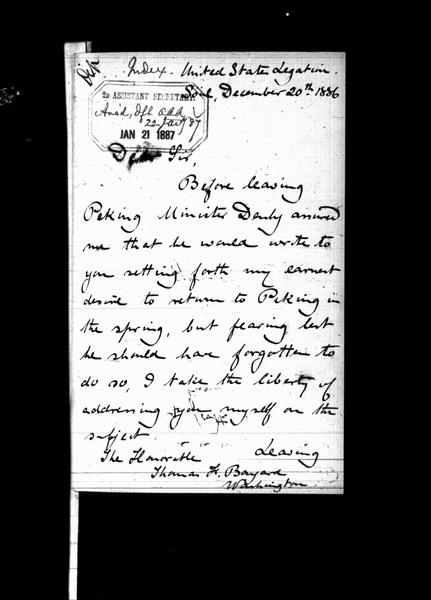 Dip
Index. United States Legation.
Soul, December 20th 1886
2D ASSISTANT SECRETARY
Ans'd, Dft
22 Jany '87
JAN 21 1887
Dear Sir,
Before leaving
Peking Minister Denby assured
me that he would write to
you setting forth my earnest
desire to return to Peking in
the spring, but fearing lest
he should have forgotten to
do so, I take the liberty of
addressing you myself on the
subject.
Leaving
The Honorable
Thomas F. Bayard
Washington